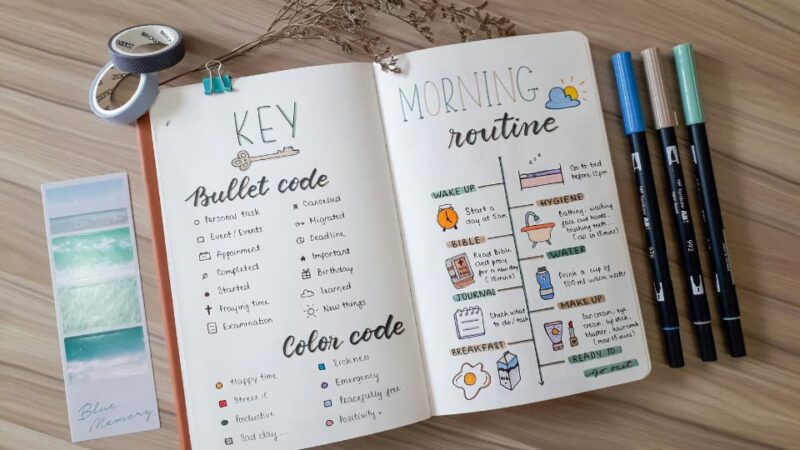 KEY
Bullet code
Personal task
Event/Events
Appoinment
Completed
Started
Praying time
Examination
Cancelled
Migrated
Deadline
Important
Birthday
Learned
New things
Color code
Happy time
Stress :(
Productive
Sad day...
Sickness
Emergency
Peacefully free
Positivity
MORNING
routine
zzz
Go to bed
before 12pm
WAKE UP
Start a
day at 5am
HYGIENE
Bathing, washing
face and hands,
brushing teeth...
(all in 15 mins)
BIBLE
Read Bible
and pray
for a new day
(15mins)
WATER
Drink a cup of
500 ml warm water
JOURNAL
Check what
to do / task
MAKE UP
Suncream, eye
cream, lipstick,
blusher, haircomb
(max 15 mins)
BREAKFAST
READY TO
go out
Blue
Memory
ABT
992